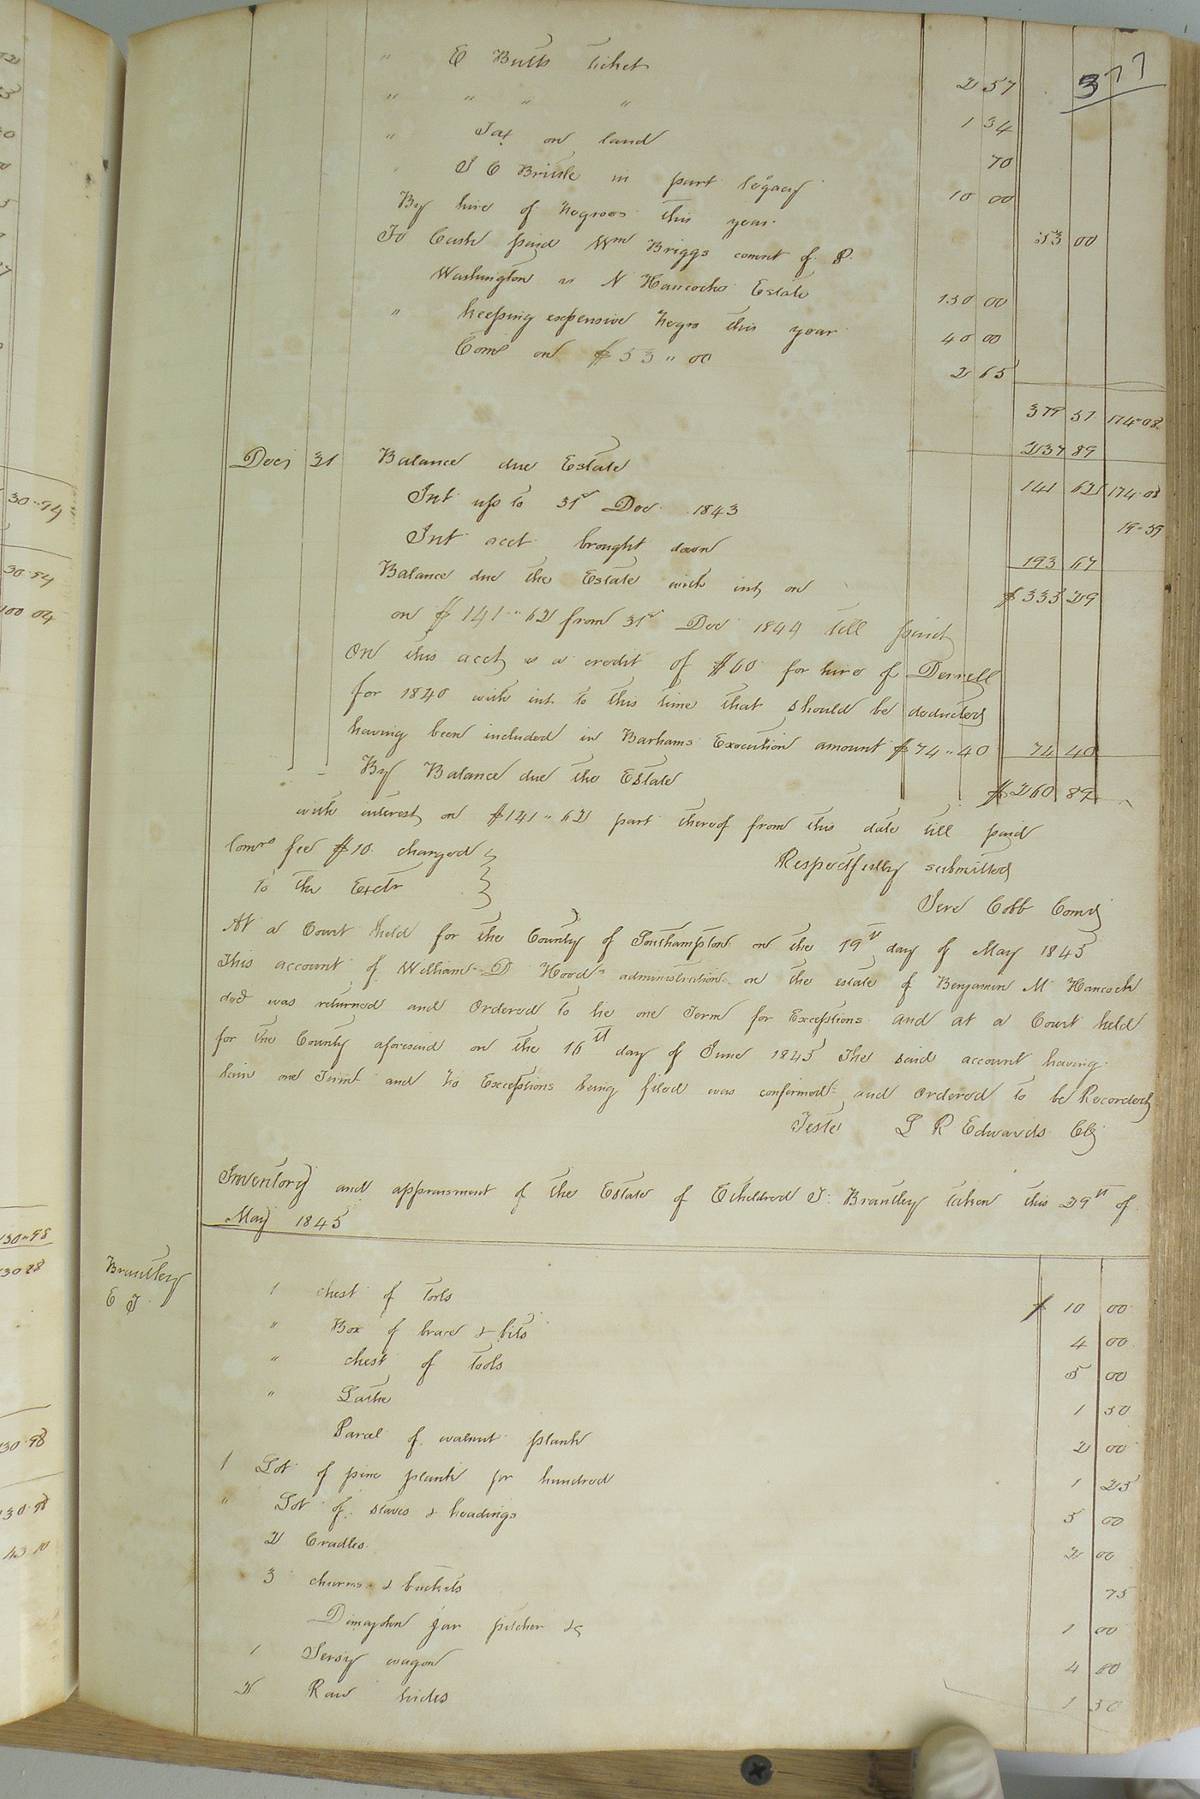 377
" E Butts ticket 2 57
" " " " 1 34
" Tax on land 70
" in part legacy 10 00
By hire of Negroes this year 53 00
To Cash paid Wm Briggs comnt of P.
Washington vs N Hancocks Estate 130 00
" keeping expensive Negro this year 40 00
Coms on $53"00 2 65
379 51 174"08
237 89
Decr 31 Balance due Estate 141 62 174"08
Int up to 31st Dec 1843 19"59
Int acct brought down 193 67
Balance due the Estate with int on $333 29
on $141"62 from 31st Dec 1844 till paid
On this acct is a credit of $60 for hire of
for 1840 with int to this time that should be deducted
having been included in Barhams Execution amount $74"40 74 40
By Balance due the Estate $260 89
with interest on $141"62 part thereof from this date till paid
Comrs fee $10 charged
to the Exctr
Respectfully submitted
Jere Cobb Comr
At a Court held for the County of Southampton on the 19th day of May 1845
This account of William D Hood administration on the estate of Benjamin M Hancock
decd was returned and Ordered to lie one Term for Exceptions and at a Court held
for the County aforesaid on the 16th day of June 1845 The said account having
lain one Term and no Exceptions being filed was confirmed and ordered to be Recorded
Teste L R Edwards Clk
Inventory and appraisment of the Estate of Etheldred J. Brantley taken this 29th of
May 1845
Brantley
E J
1 chest of Tools $ 10 00
" Box of brace & bits 4 00
" chest of Tools 5 00
" Lathe 1 50
Parcel of walnut plank 2 00
1 Lot of pine plank pr hundred 1 25
" Lot of staves & headings 5 00
2 Cradles 2 00
3 churns & buckets 75
jar pitcher &c 1 00
1 Jersy wagon 4 00
2 Raw hides 1 50
30"94
30"94
100 04
130"98
130 98
130"98
43 10